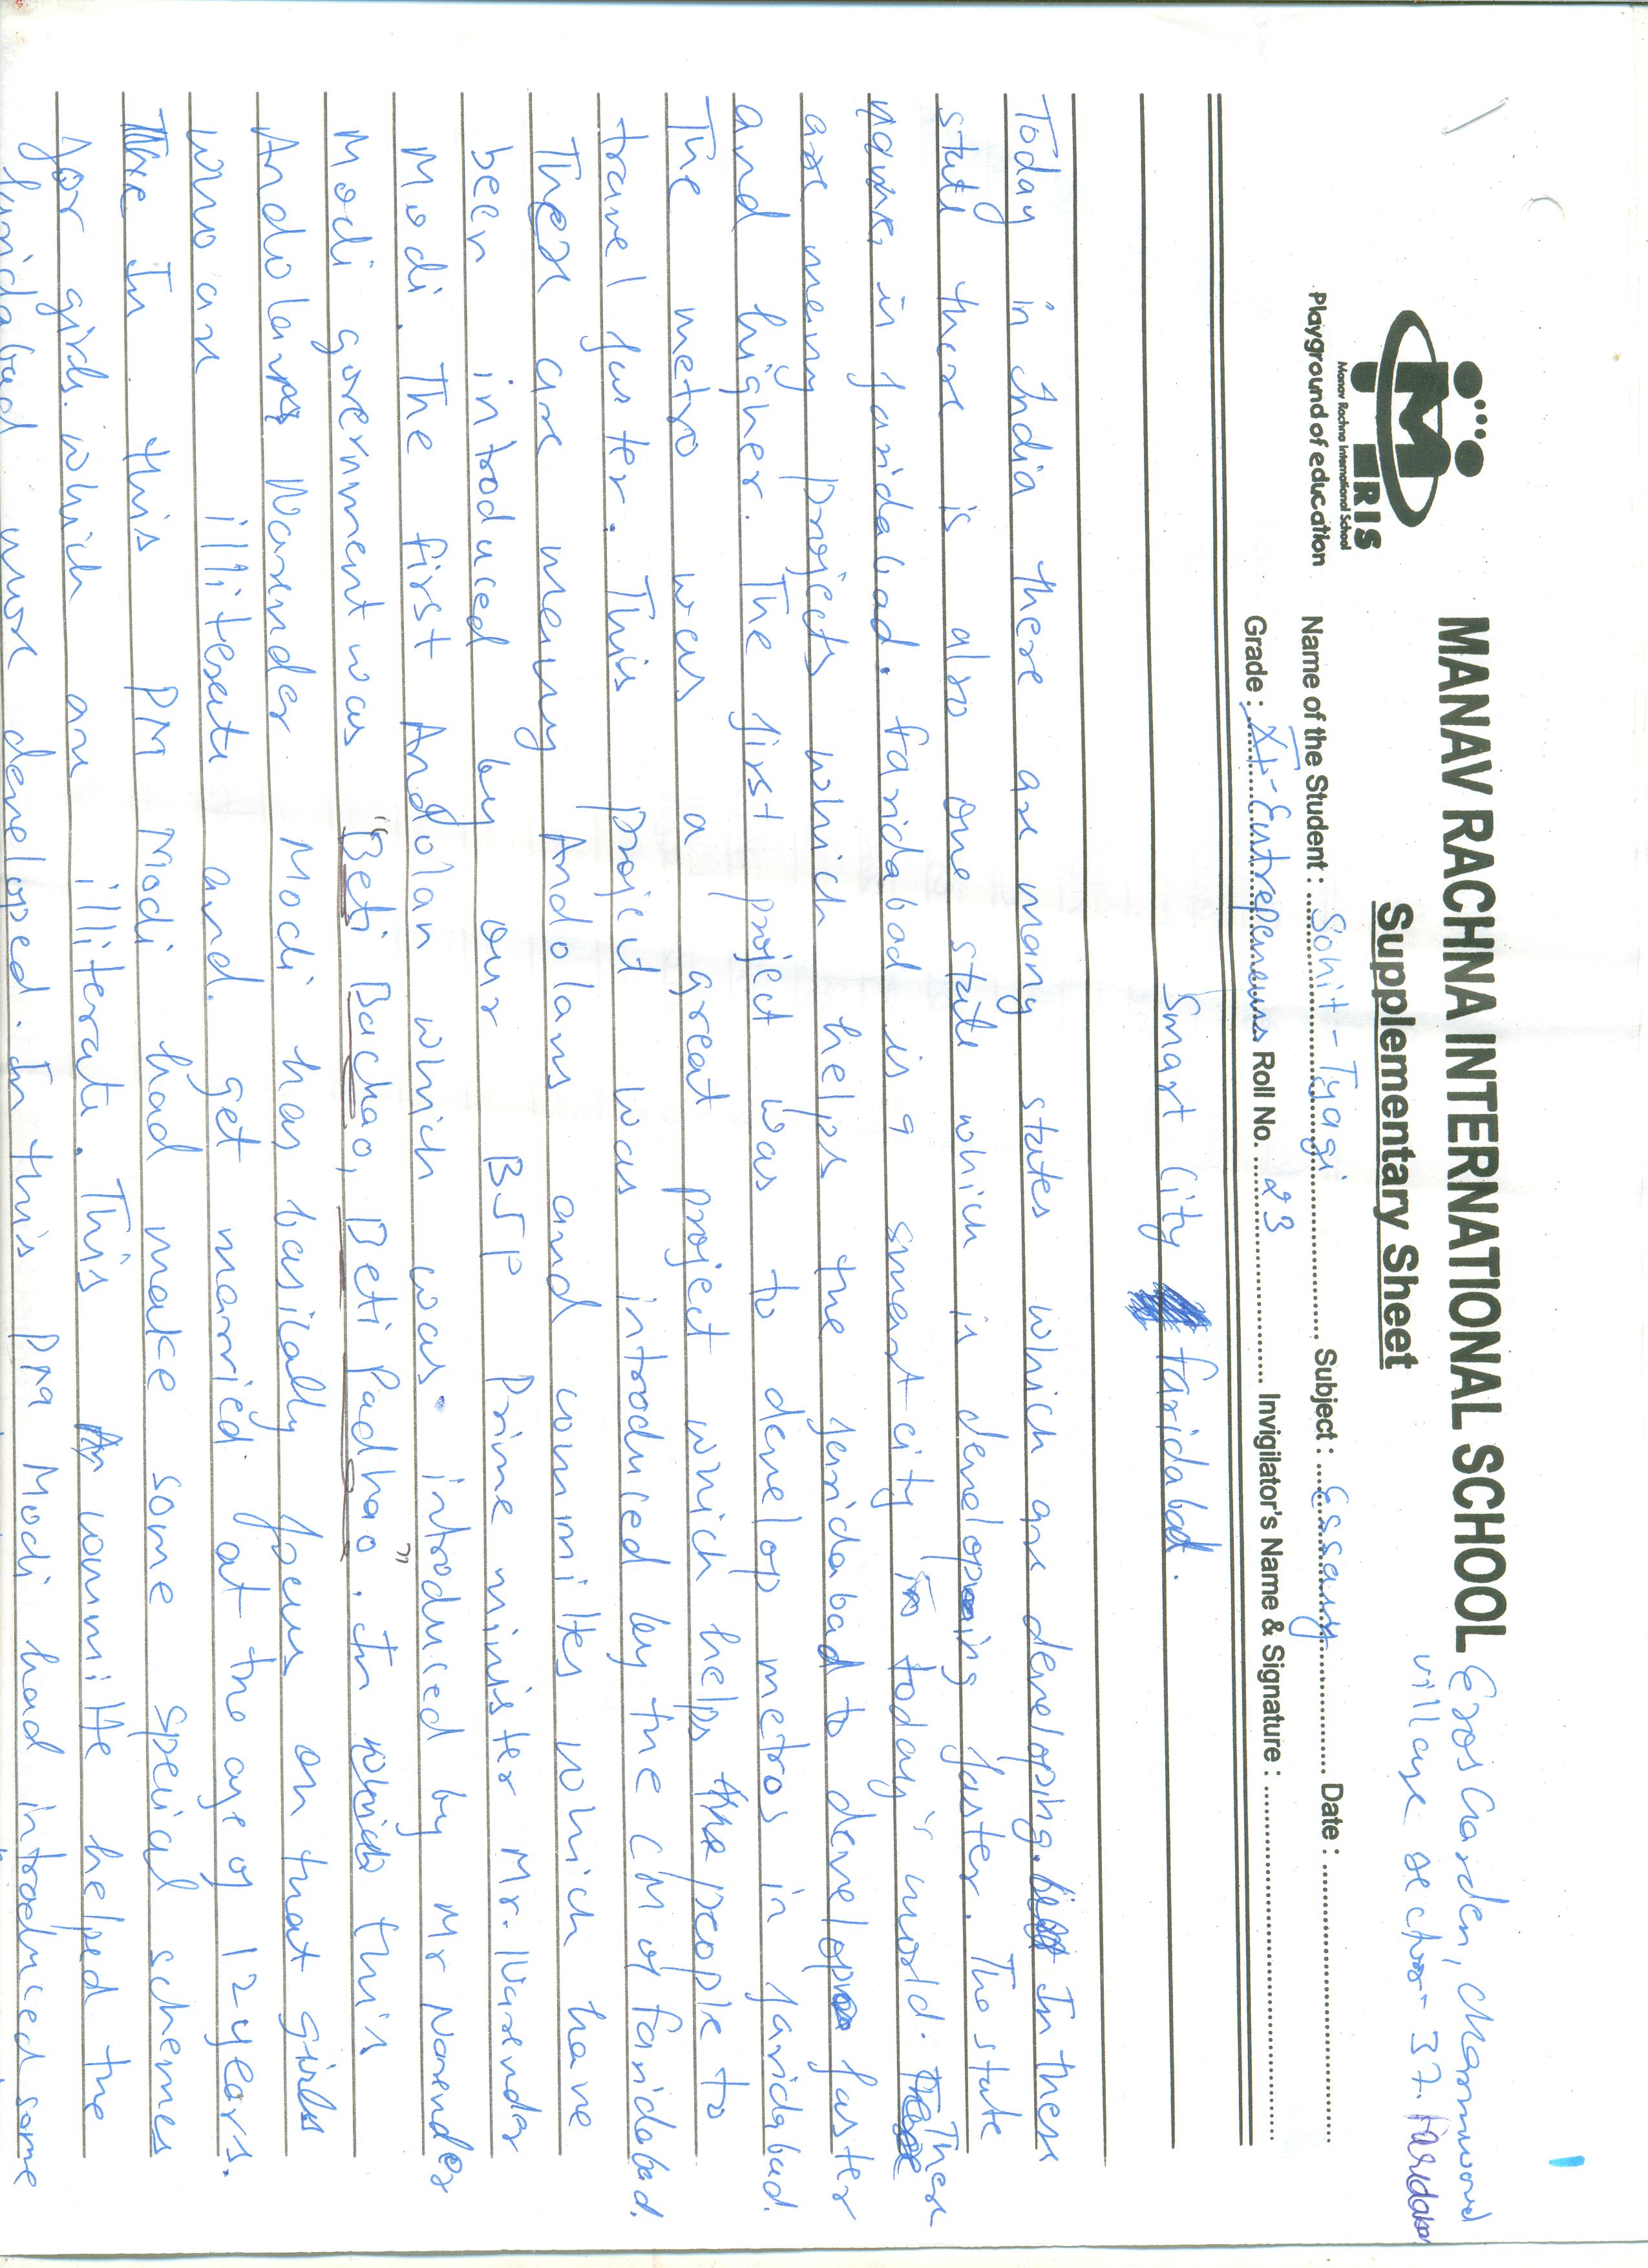 MANAV RACHNA INTERNATIONAL SCHOOL
Eros Garden, Charmwood
village sector - 37. Faridabad
Supplementary Sheet
MRIS
Manav Rachna International School
Playground of education
Name of the Student : Sohit - Tyagi Subject : Essay Date :
Grade : XI - Entrepenaurs Roll No. 23 Invigilator's Name & Signature :
Smart City faridabad.
Today in India there are many states which are developing. In these
state there is also one state which is developing faster. The state
name, in faridabad. faridabad is a smart city in today's world. There
are many projects which helps the faridabad to develop faster
and higher. The first project was to develop metros in faridabad.
The metro was a great project which helps the people to
travel faster. This project was introduced by the CM of faridabad.
There are many Andolans and committes which have
been introduced by our BJP Prime minister Mr. Narender
Modi. The first Andolan which was introduced by Mr Narender
Modi government was "Beti Bachao, Beti Padhao". In this
Andolans Narender Modi has basically focus on that girls
who are illiterate and get married at the age of 12 years.
In this PM Modi had make some special schemes
for girls which are illiterate. This committe helped the
faridabad more developed. In this PM Modi had introduced some